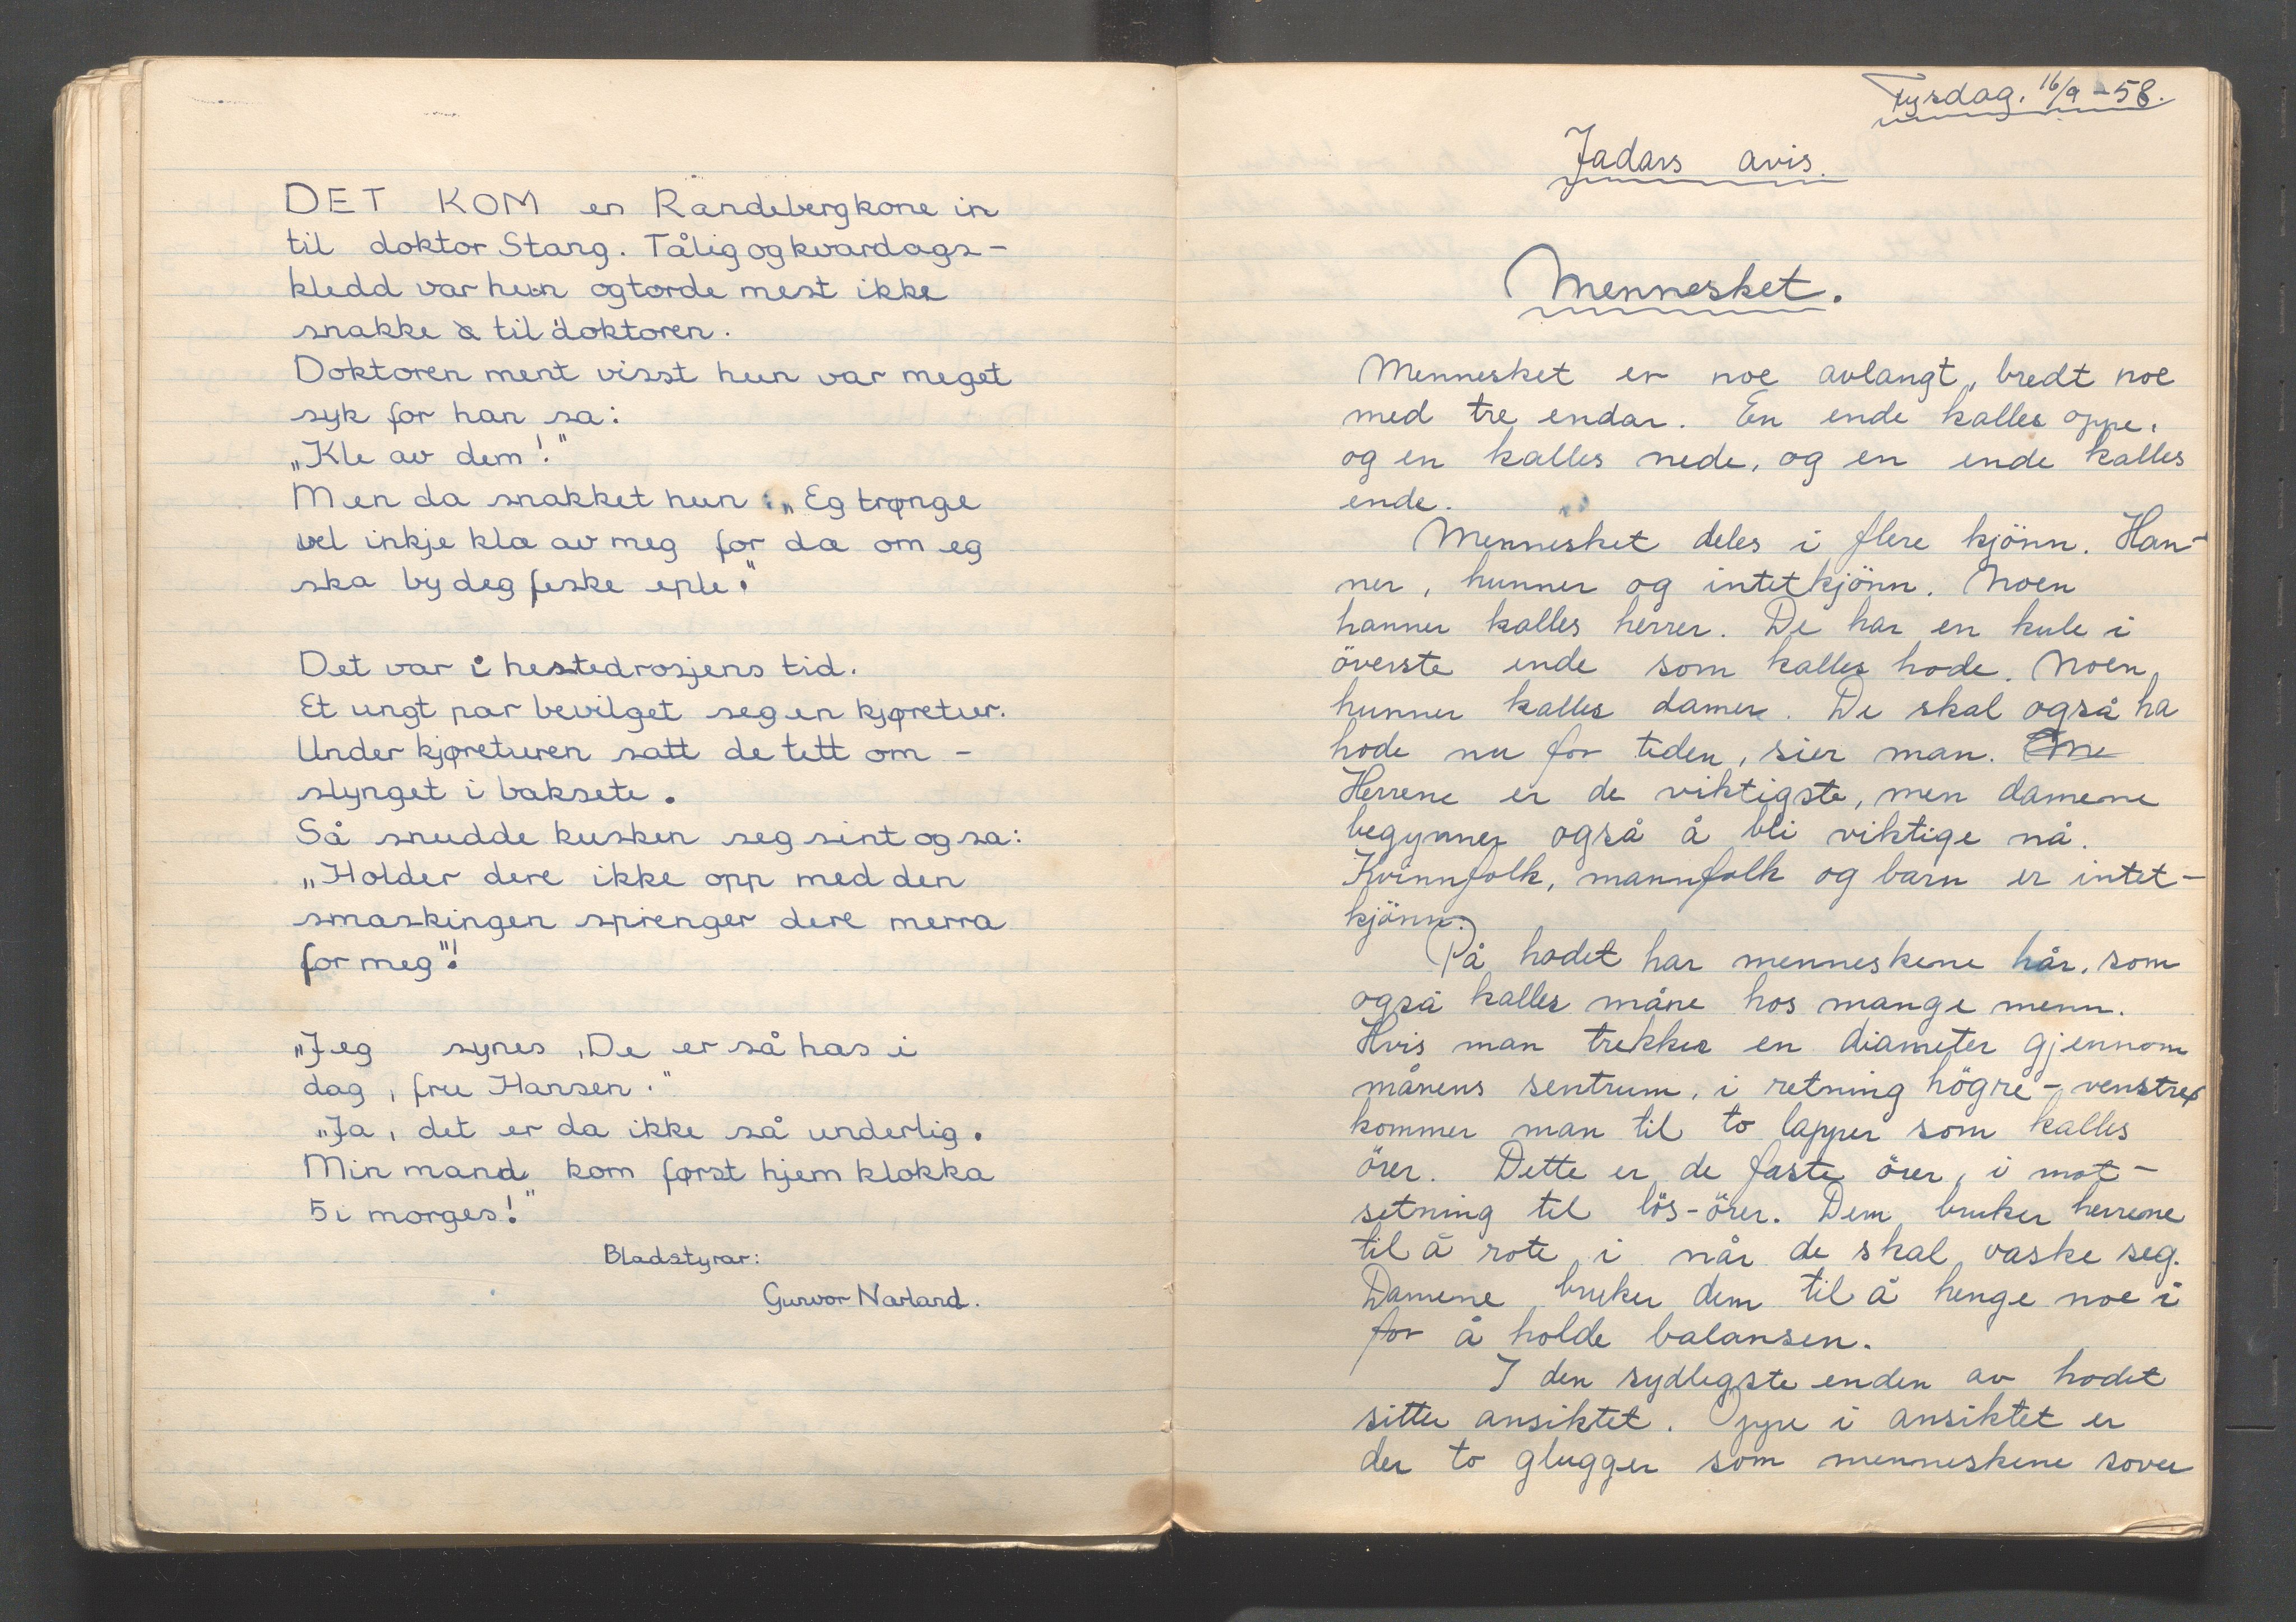 DET KOM en Randebergkone in
til doktor Stang. Tålig og kvardags-
kledd var hun og torde mest ikke
snakke til doktoren.
Doktoren ment visst hun var meget
syk for han sa:
„Kle av dem!"
Men da snakket hun: „Eg trønge
vel inkje kla av meg for da om eg
ska by deg feske eple."
Det var i hestedrosjens tid.
Et ungt par bevilget seg en kjøretur.
Under kjøreturen satt de tett om-
slynget i baksete.
Så snudde kusken seg sint og sa:
„Holder dere ikke opp med den
smaskingen sprenger dere merra
for meg"!
„Jeg synes, De er så has i
dag, fru Hansen."
„Ja, det er da ikke så underlig.
Min mand kom først hjem klokka
5 i morges!"
Bladstyrar:
Gunvor Narland.
Tysdag. 16/9 - 58.
Jadars avis.
Mennesket.
Mennesket er noe avlangt, bredt noe
med tre endar. En ende kalles oppe,
og en kalles nede, og en ende kalles
ende.
Mennesket deles i flere kjönn. Han-
ner, hunner og intetkjönn. Noen
hanner kalles herrer. De har en kule i
överste ende som kalles hode. Noen
hunner kalles damer. De skal også ha
hode nu for tiden, sier man.
Herrene er de viktigste, men damene
begynner også å bli viktige nå.
Kvinnfolk, mannfolk og barn er intet-
kjönn.
På hodet har menneskene hår, som
også kalles måne hos mange menn.
Hvis man trekker en diameter gjennom
månens sentrum, i retning högre - venstre
kommer man til to lapper som kalles
örer. Dette er de faste örer, i mot-
setning til lös-örer. Dem bruker herrene
til å rote i når de skal vaske seg.
Damene bruker dem til å henge noe i
for å holde balansen.
I den sydligste enden av hodet
sitter ansiktet. Oppe i ansiktet er
der to glugger som menneskene sover